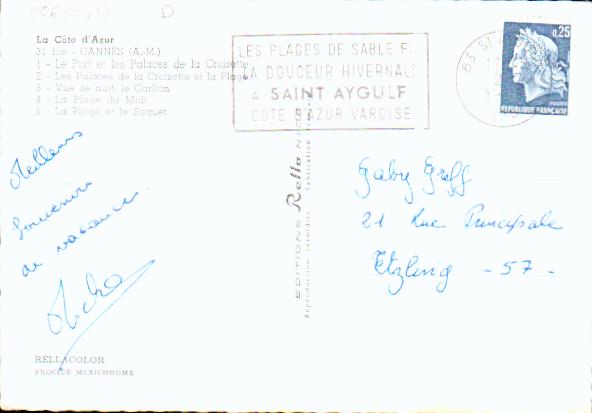 D
La Côte d'Azur
31 bis - CANNES (A.-M.)
1 - Le Port et les Palaces de la Croisette
2 - Les Palaces de la Croisette et la Plage
3 - Vue de nuit, le Carlton
4 - La Plage du Midi
5 - La Plage et le Suquet
LES PLAGES DE SABLE FI
LA DOUCEUR HIVERNALE
A SAINT AYGULF
COTE D'AZUR VAROISE
83 ST
0,25
POSTES
REPUBLIQUE FRANÇAISE
Meilleurs
Souvenirs
de vacances.
EDITIONS Rella NICE
Reproduction interdite - Fabrication
Gaby Greff
21 Rue Principale
Etzling - 57 -
RELLACOLOR
PROCÉDÉ MEXICHROME